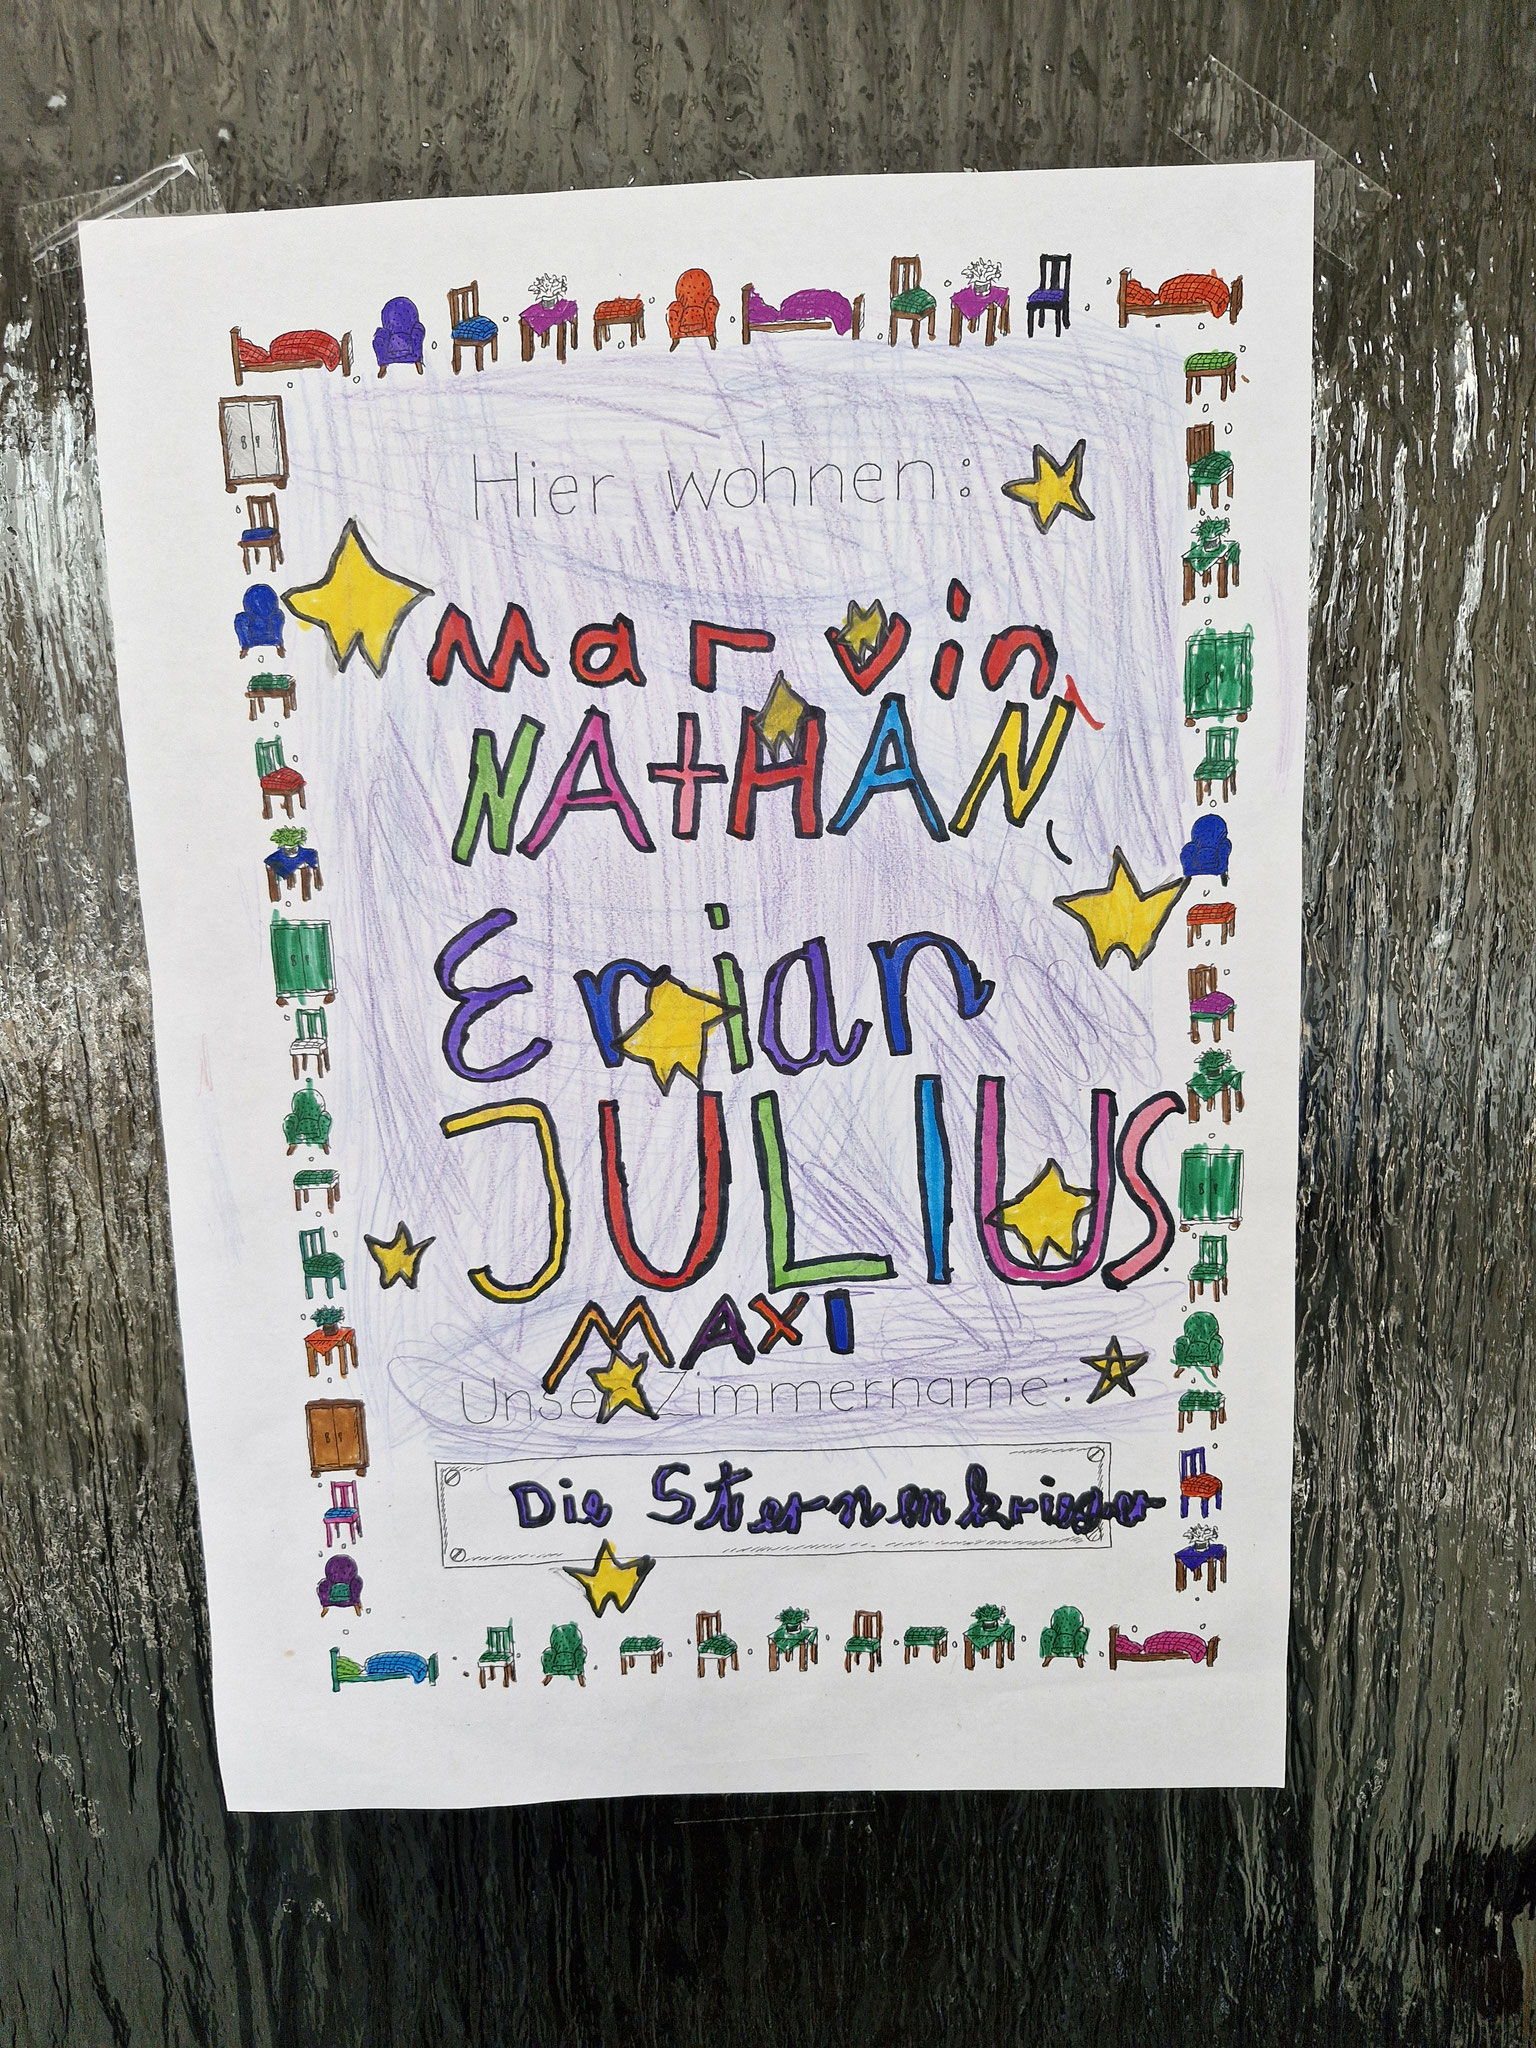 Hier wohnen:
Marvin,
NAtHAN,
Erian
JULIUS
MAXI
Unser Zimmername:
Die Sternenkrieger